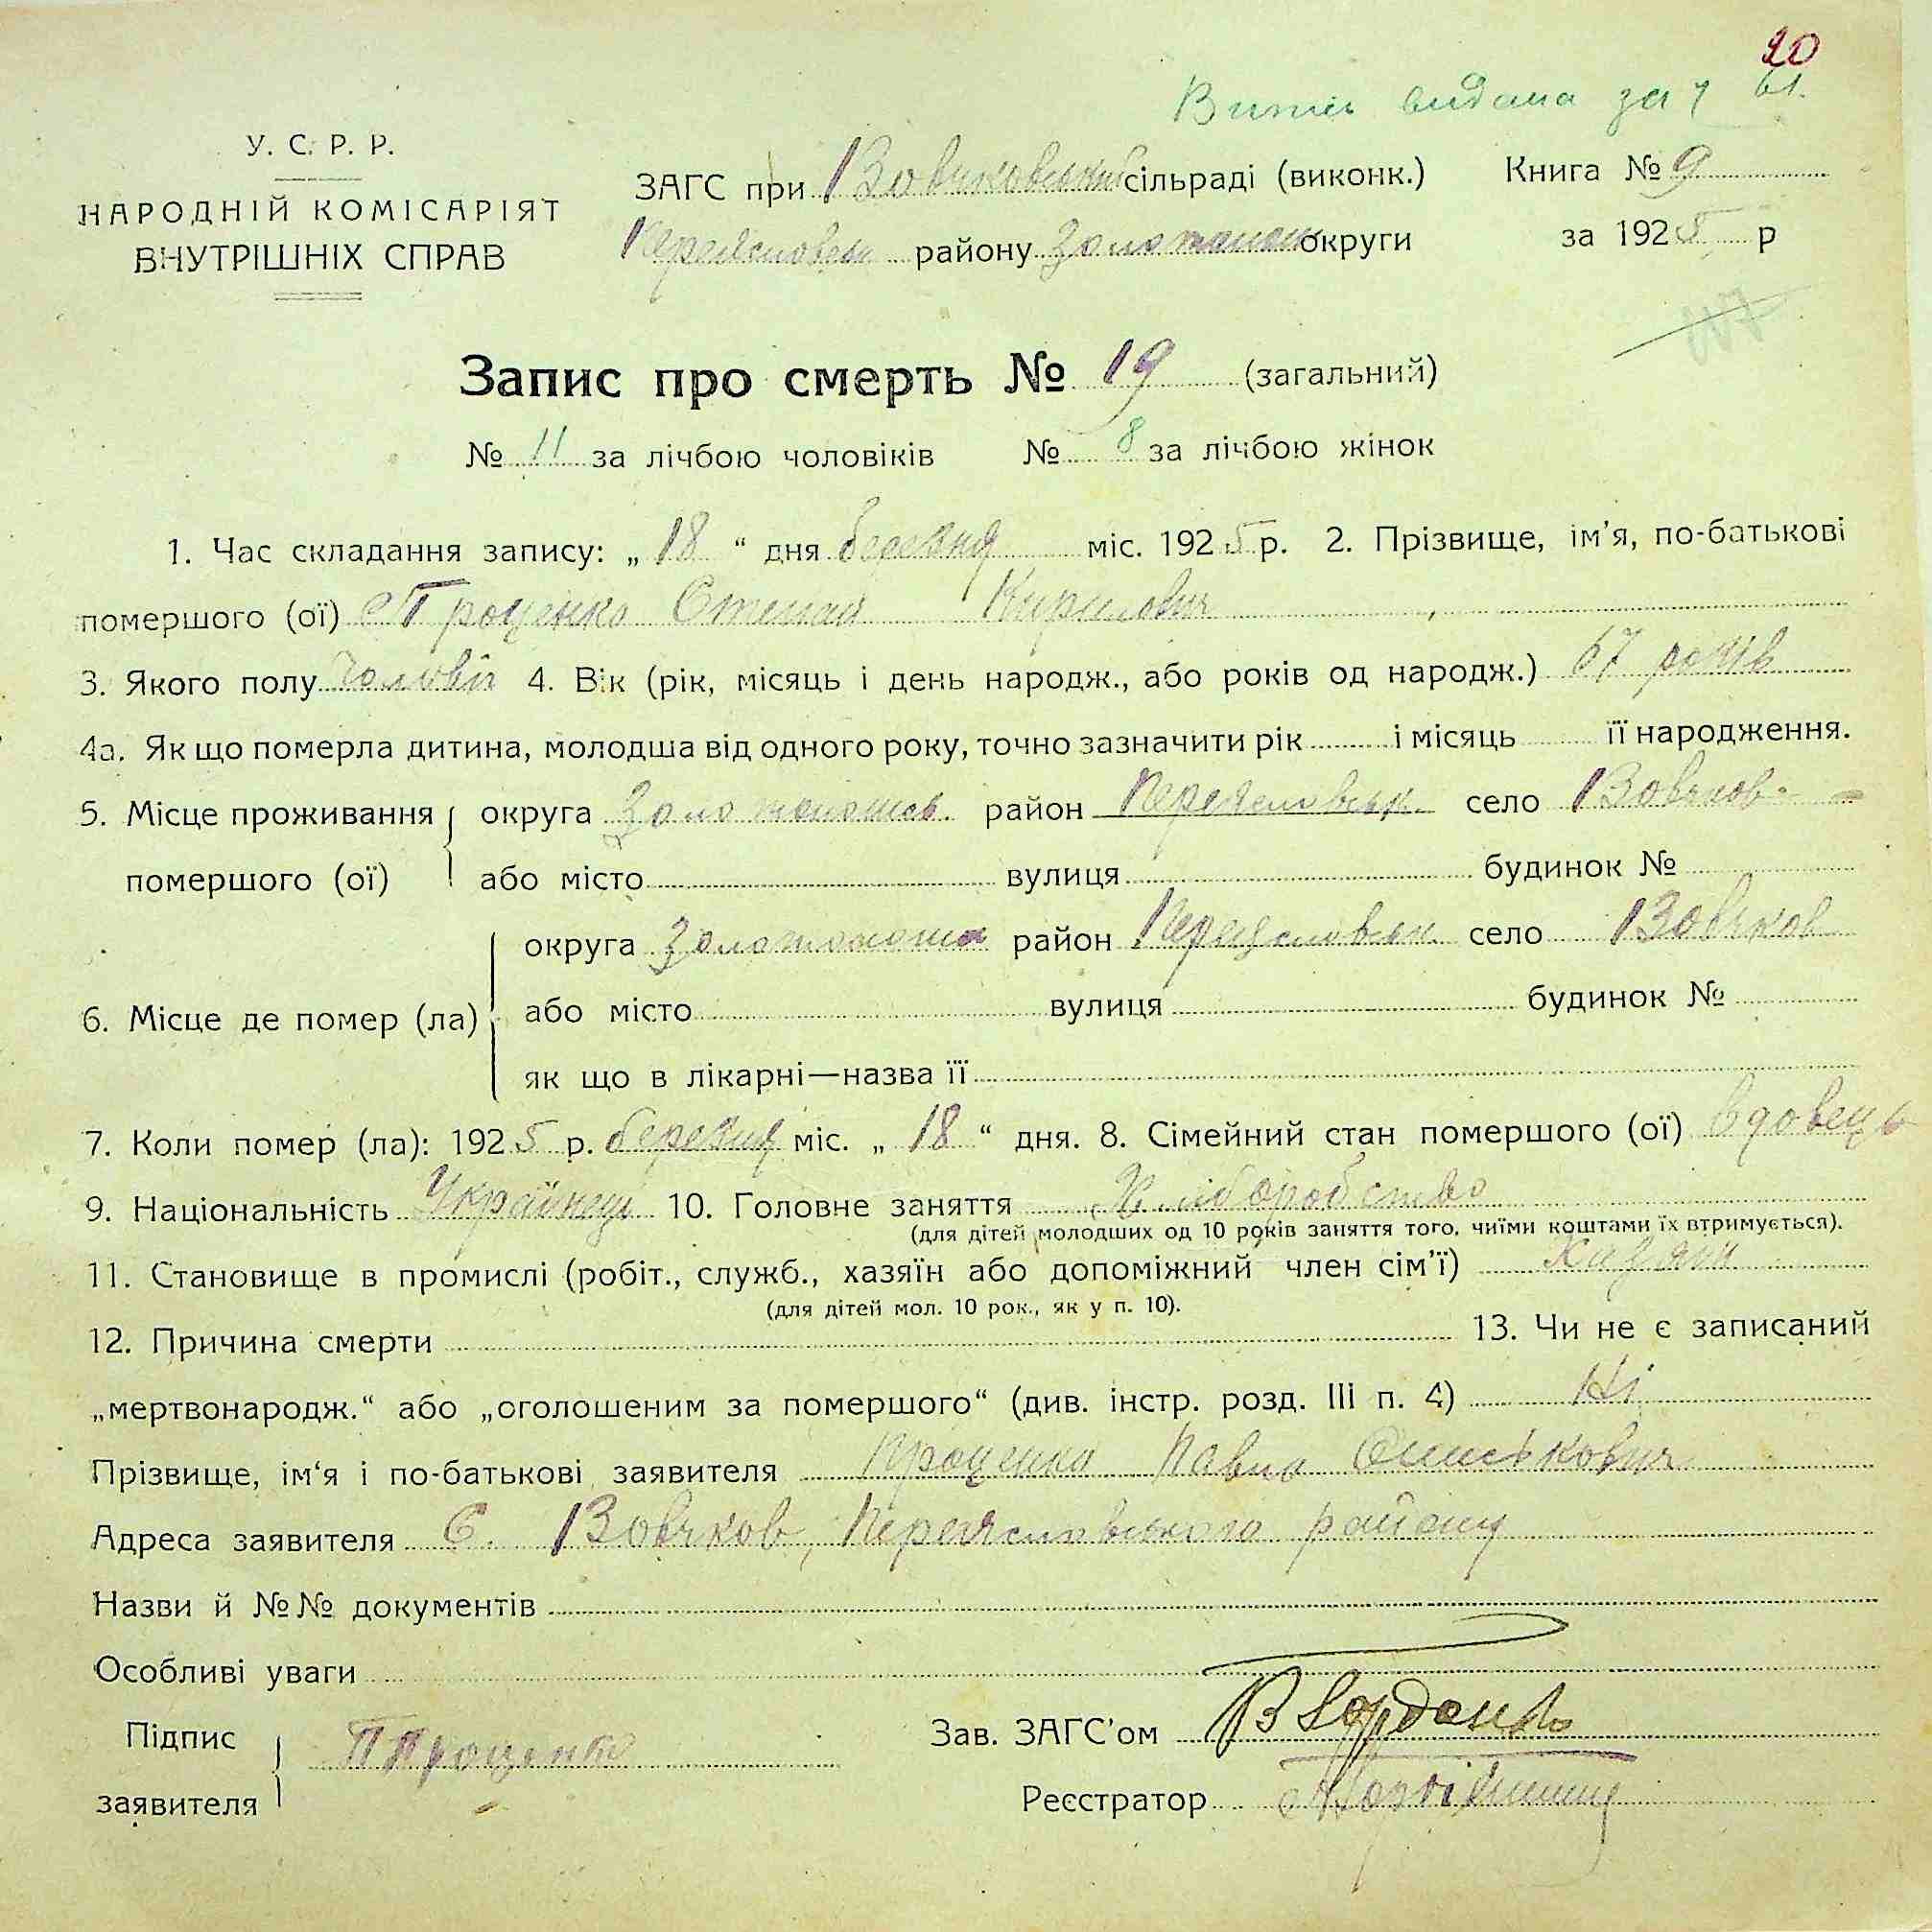 20
видана за
У. С. Р. Р.
НАРОДНІЙ КОМІСАРІЯТ
ВНУТРІШНІХ СПРАВ
ЗАГС при Вовчковській сільраді (виконк.)
Переяславськ району Золотонош округи
Книга № 9
за 1925 р
Запис про смерть № 19 (загальний)
№ 11 за лічбою чоловіків № 8 за лічбою жінок
1. Час складання запису: „ 18 “ дня березня міс. 1925 р. 2. Прізвище, ім'я, по-батькові
помершого (ої) Проценко Степан Кирилович
3. Якого полу чоловіч 4. Вік (рік, місяць і день народж., або років од народж.) 67 років
4а. Як що померла дитина, молодша від одного року, точно зазначити рік і місяць її народження.
5. Місце проживання помершого (ої) округа Золотоношсь. район Переяславськ. село Вовчков
або місто вулиця будинок №
6. Місце де помер (ла) округа Золотоноша район Переяславськ село Вовчков
або місто вулиця будинок №
як що в лікарні—назва її
7. Коли помер (ла): 1925 р. березня міс. „ 18 “ дня. 8. Сімейний стан помершого (ої) вдовець
9. Національність Українець 10. Головне заняття Хліборобство
(для дітей молодших од 10 років заняття того, чиїми коштами їх втримується).
11. Становище в промислі (робіт., служб., хазяїн або допоміжний член сім'ї) хазяін
(для дітей мол. 10 рок., як у п. 10).
12. Причина смерти 13. Чи не є записаний
„мертвонародж.“ або „оголошеним за помершого“ (див. інстр. розд. III п. 4) Ні
Прізвище, ім'я і по-батькові заявителя Проценко Павло
Адреса заявителя С. Вовчков, Переяславського району
Назви й №№ документів
Особливі уваги
Підпис заявителя П Проценко
Зав. ЗАГС'ом
Реєстратор